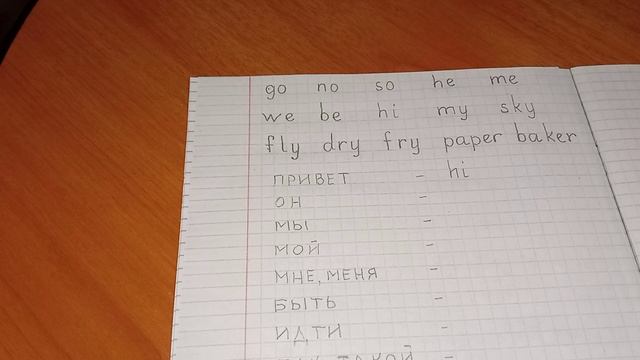 go no so he me
we be hi my sky
fly dry fry paper baker
ПРИВЕТ – hi
ОН –
МЫ –
МОЙ –
МНЕ, МЕНЯ –
БЫТЬ –
ИДТИ –